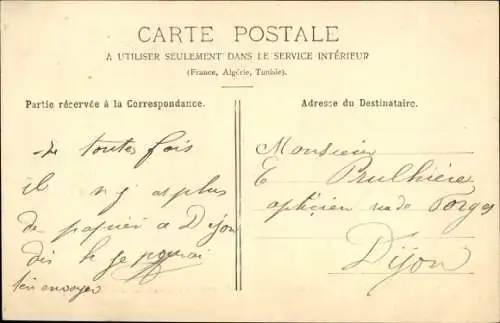 CARTE POSTALE
A UTILISER SEULEMENT DANS LE SERVICE INTÉRIEUR
(France, Algérie, Tunisie).
Partie réservée à la Correspondance.
Adresse du Destinataire.
toutes fois
il n y as plus
de papier a Dijon
dis le je pourai
t'en envoyer
Monsieur
E Brulhière
opticien rue de Forges
Dijon